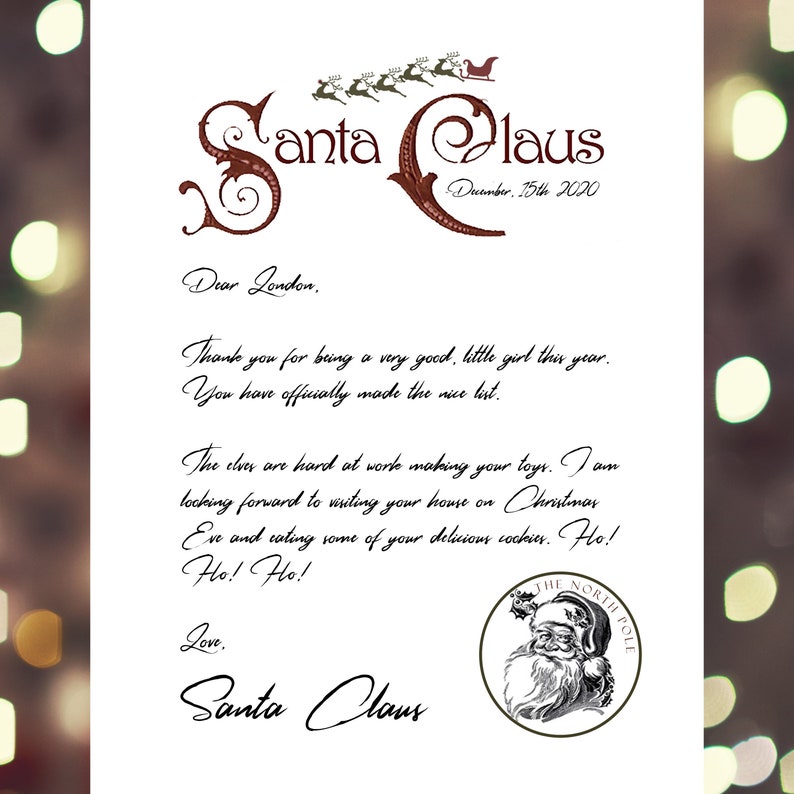 Santa Claus
December, 15th 2020
Dear London,
Thank you for being a very good, little girl this year.
You have officially made the nice list.
The elves are hard at work making your toys. I am
looking forward to visiting your house on Christmas
Eve and eating some of your delicious cookies. Ho!
Ho! Ho!
THE NORTH POLE
Love,
Santa Claus